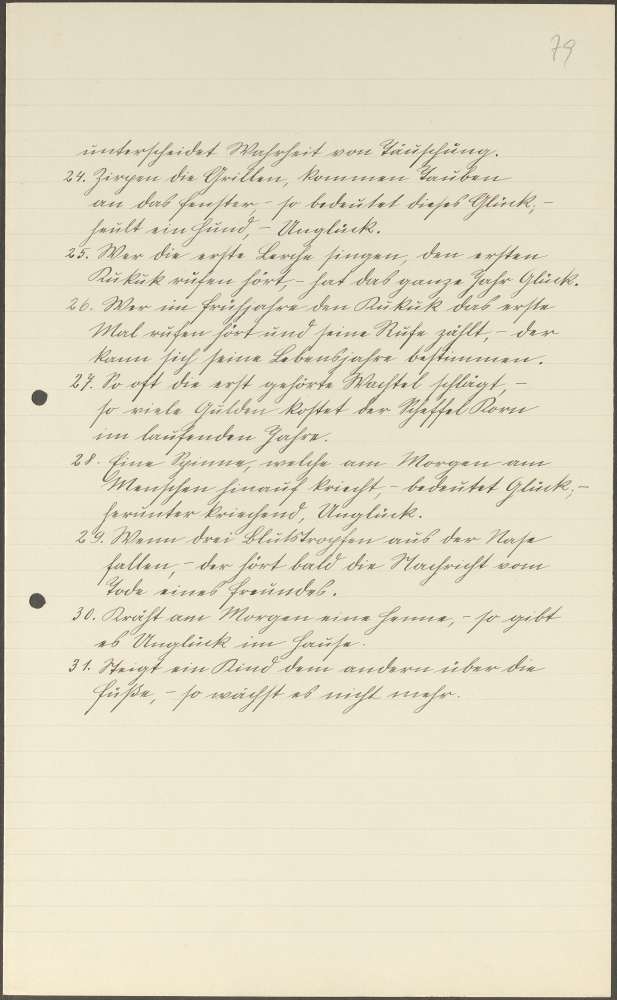 79
unterscheidet Wahrheit von Täuschung.
24. Zirpen die Grillen, kommen Tauben
an das Fenster, - so bedeutet dieses Glück; -
heult ein Hund, - Unglück.
25. Wer die erste Lerche singen, den ersten
Kukuk rufen hört, - hat das ganze Jahr Glück.
26. Wer im Frühjahre den Kukuk das erste
Mal rufen hört und seine Rufe zählt, - der
kann sich seine Lebensjahre bestimmen.
27. So oft die erst gehörte Wachtel schlägt, -
so viele Gulden kostet der Scheffel Korn
im laufenden Jahre.
28. Eine Spinne, welche am Morgen am
Menschen hinauf kriecht, - bedeutet Glück; -
herunter kriechend, Unglück.
29. Wenn drei Blutstropfen aus der Nase
fallen, - der hört bald die Nachricht vom
Tode eines Freundes.
30. Kräht am Morgen eine Henne, - so gibt
es Unglück im Hause.
31. Steigt ein Kind dem andern über die
Füße, - so wächst es nicht mehr.